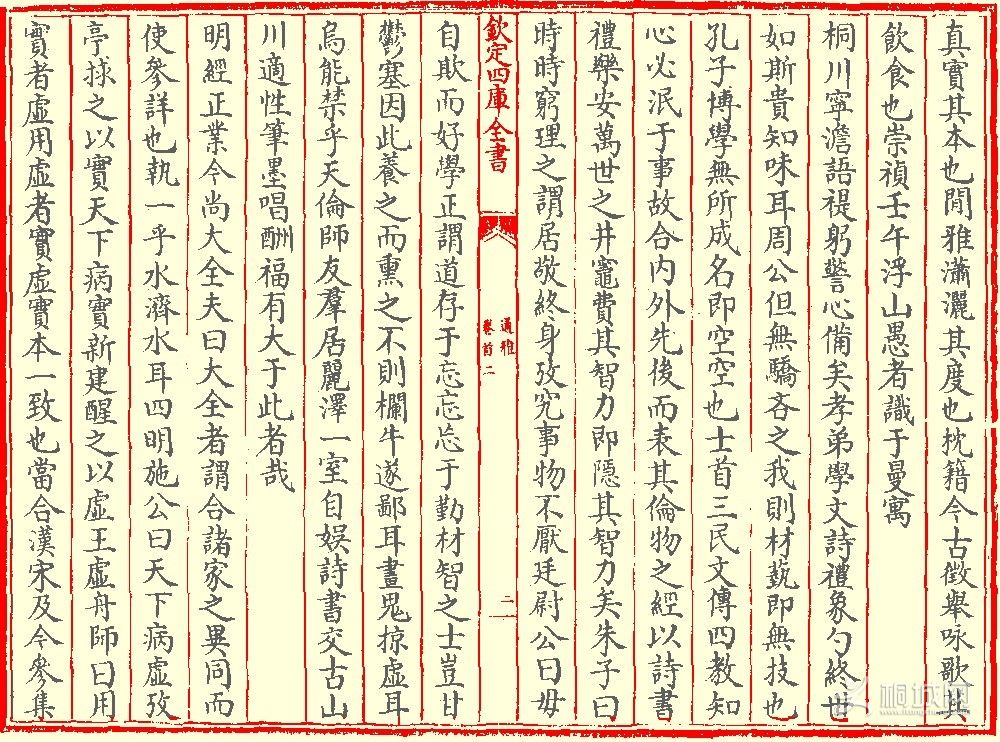 真實其本也閒雅瀟灑其度也枕籍今古徵舉咏歌其
飲食也崇禎壬午浮山愚者識于曼寓
桐川寧澹語禔躬警心備矣孝弟學文詩禮象勺終世
如斯貴知味耳周公但無驕吝之我則材蓺即無技也
孔子博學無所成名即空空也士首三民文傳四教知
心必泯于事故合內外先後而表其倫物之經以詩書
禮樂安萬世之井竈費其智力即隱其智力矣朱子曰
時時窮理之謂居敬終身攷究事物不厭廷尉公曰毋
欽定四庫全書
通雅
卷首二
二
自欺而好學正謂道存于忘忘忘于勤材智之士豈甘
鬱塞因此養之而熏之不則欄牛遂鄙耳畫鬼掠虛耳
烏能禁乎天倫師友羣居麗澤一室自娛詩書交古山
川適性筆墨唱酬福有大于此者哉
明經正業今尚大全夫曰大全者謂合諸家之異同而
使參詳也執一乎水濟水耳四明施公曰天下病虛攷
亭捄之以實天下病實新建醒之以虛王虛舟師曰用
實者虛用虛者實虛實本一致也當合漢宋及今參集
桐城网